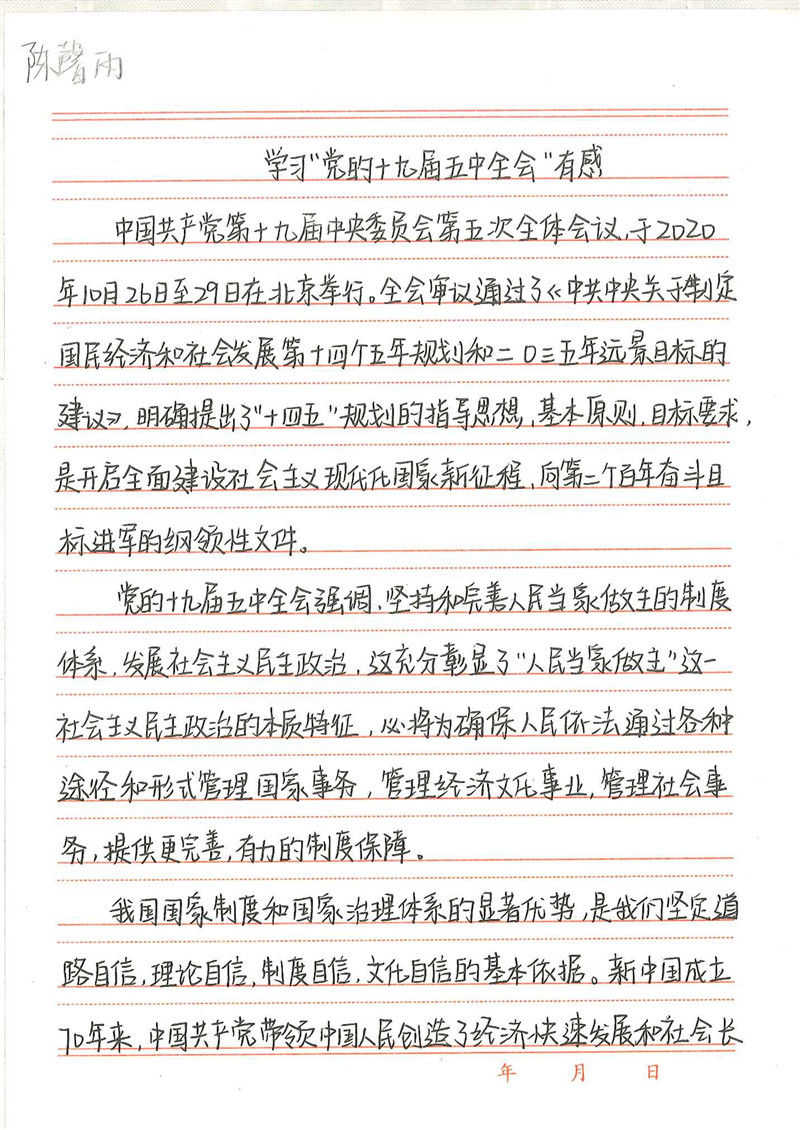 陈馨雨
学习“党的十九届五中全会”有感
中国共产党第十九届中央委员会第五次全体会议,于2020
年10月26日至29日在北京举行。全会审议通过了《中共中央关于制定
国民经济和社会发展第十四个五年规划和二〇三五年远景目标的
建议》,明确提出了“十四五”规划的指导思想,基本原则,目标要求,
是开启全面建设社会主义现代化国家新征程,向第二个百年奋斗目
标进军的纲领性文件。
党的十九届五中全会强调,坚持和完善人民当家做主的制度
体系,发展社会主义民主政治,这充分彰显了“人民当家做主”这一
社会主义民主政治的本质特征,必将为确保人民依法通过各种
途径和形式管理国家事务,管理经济文化事业,管理社会事
务,提供更完善,有力的制度保障。
我国国家制度和国家治理体系的显著优势,是我们坚定道
路自信,理论自信,制度自信,文化自信的基本依据。新中国成立
70年来,中国共产党带领中国人民创造了经济快速发展和社会长
年 月 日